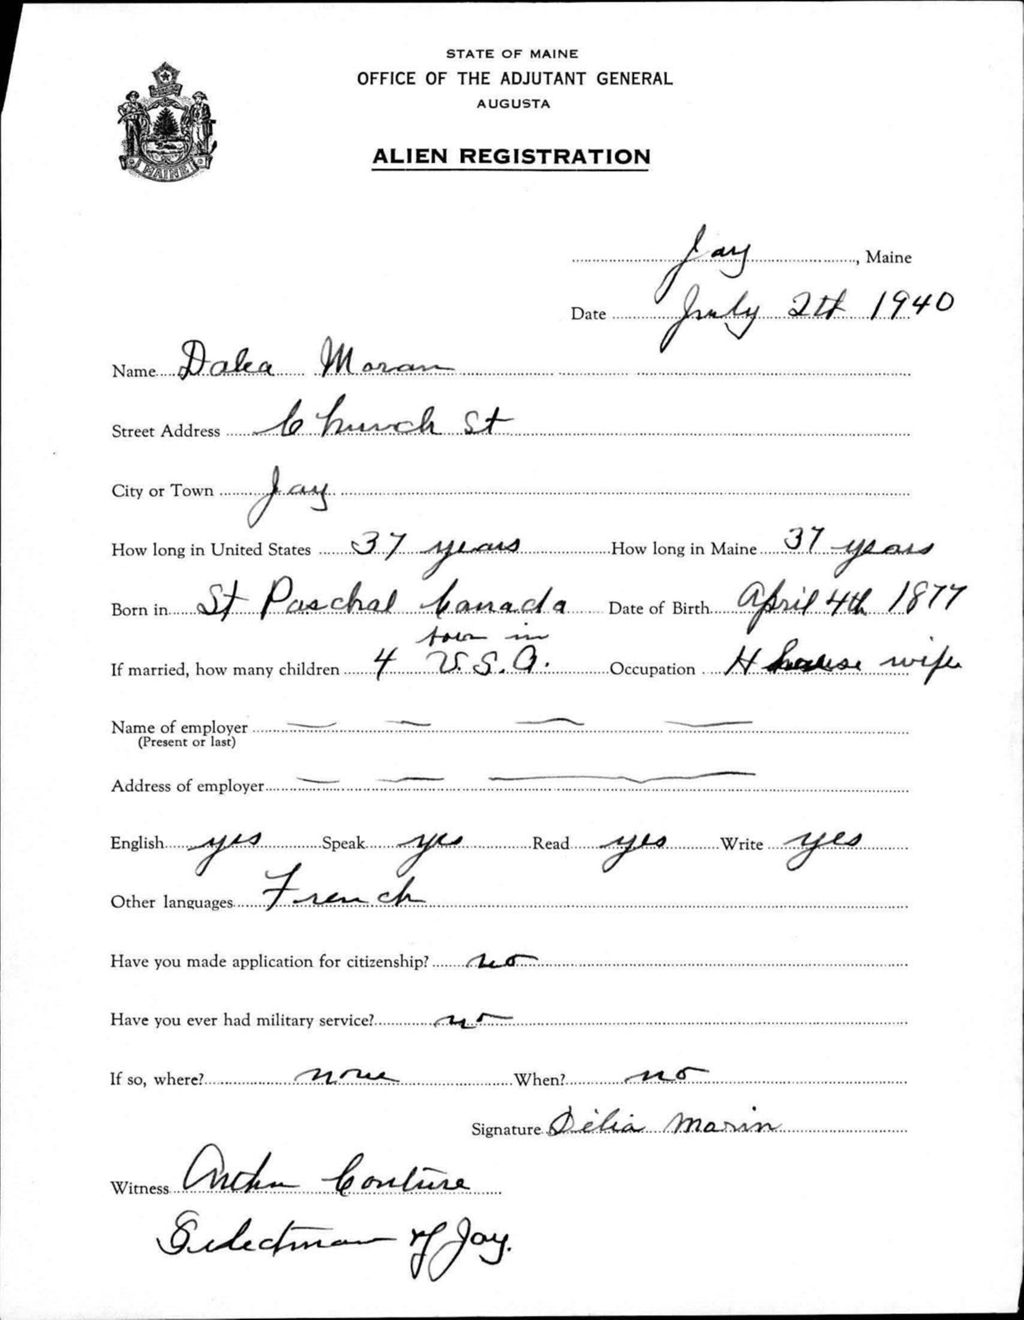 STATE OF MAINE
OFFICE OF THE ADJUTANT GENERAL
AUGUSTA
ALIEN REGISTRATION
MAINE
Jay, Maine
Date July 2th 1940
Name Dalea Moran
Street Address Church St
City or Town Jay
How long in United States 37 years How long in Maine 37 years
Born in St Paschal Canada Date of Birth April 4th 1877
born in
If married, how many children 4 U.S.A. Occupation H house wife
Name of employer
(Present or last)
Address of employer
English yes Speak yes Read yes Write yes
Other languages French
Have you made application for citizenship? no
Have you ever had military service? no
If so, where? none When? no
Signature Délia Marin
Witness Arthur Couture
Selectman of Jay.